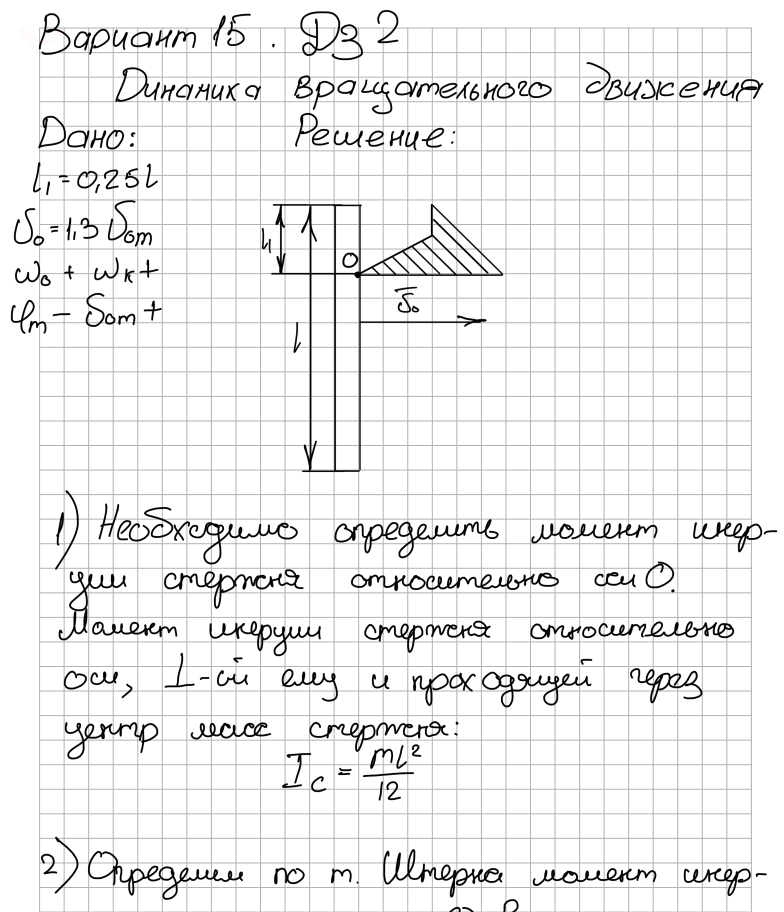 Вариант 15. Дз 2
Динамика вращательного движения
Дано: Решение:
l₁=0,25l
υ₀=1,3 υ₀m
ω₀ + ωк +
φm − υ₀m +
h
O
υ₀
l
1) Необходимо определить момент инер-
ции стержня относительно оси О.
Момент инерции стержня относительно
оси, ⊥-ой ему и проходящей через
центр масс стержня:
I_C = ml²/12
2) Определим по т. Штерна момент инер-